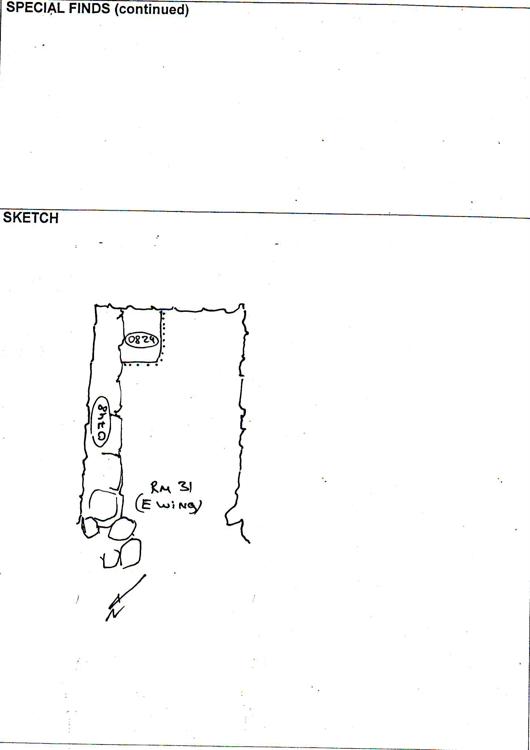 SPECIAL FINDS (continued)
SKETCH
0829
RM 31
(E WING)
N